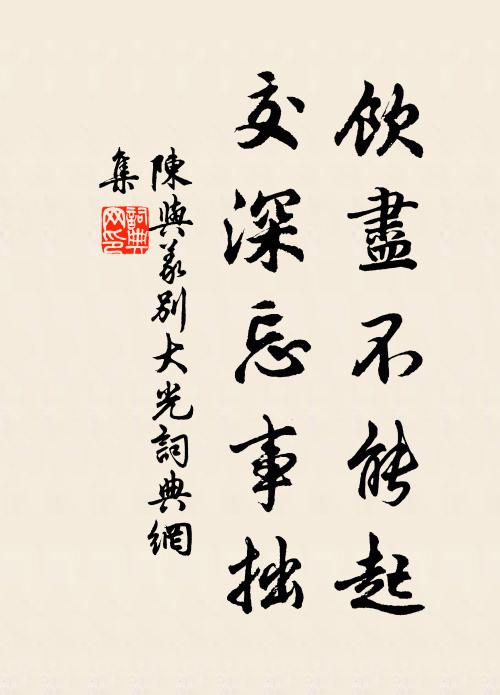 飲盡不能起
交深忘事拙
陳與義別大光詞典網
集
詞典網印